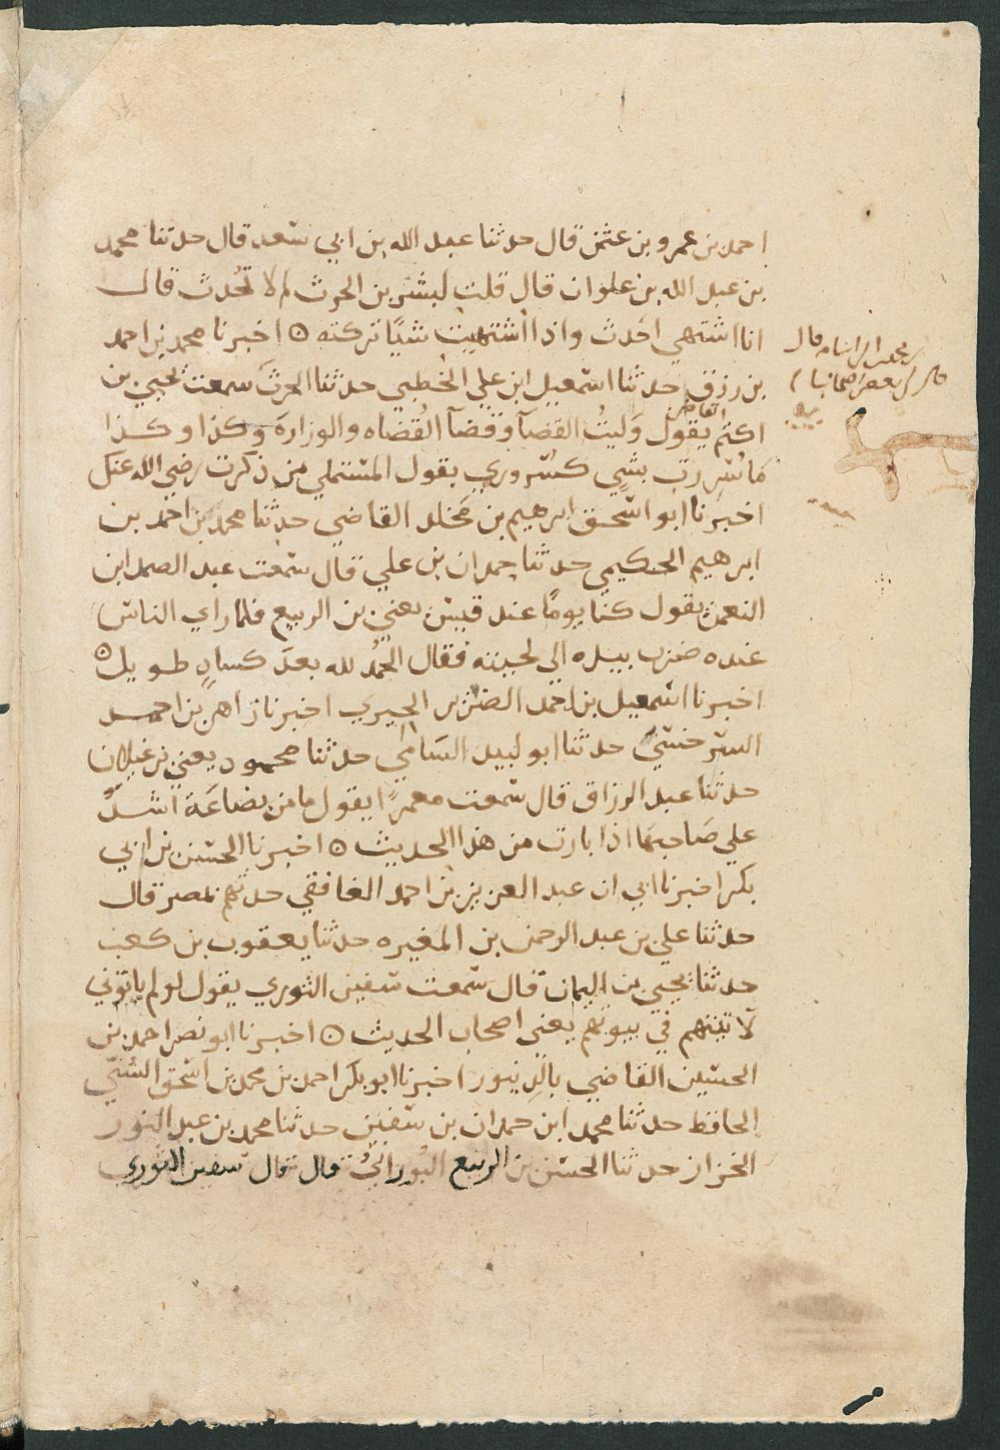 احمد بن عمرو بن عثمن قال حدثنا عبد الله بن ابي سعد قال حدثنا محمد
بن عبد الله بن علوان قال قلت لبشر بن الحرث لم لا تحدث قال
انا اشتهي احدث واذا اشتهيت شيئا تركته ٥ اخبرنا محمد بن احمد
بن رزق حدثنا اسمعيل ابن علي الخطبي حدثنا الحرث سمعت يحيى بن
اكثم القاضي يقول وليت القضآ وقضآ القضاه والوزارة وكذا وكذا
ما سررت بشي كسروري بقول المستملي من ذكرت رضي الله عنك
اخبرنا ابو اسحق ابرهيم بن مخلد القاضي حدثنا محمد بن احمد بن
ابرهيم الحكيمي حدثنا حمدان بن علي قال سمعت عبد الصمد ابن
النعمن يقول كنا يوما عند قيس يعني بن الربيع فلما راي الناس
عنده ضرب بيده الي لحيته فقال الحمد لله بعد كساد طويل ٥
اخبرنا اسمعيل بن احمد الضرير الحيري اخبرنا زاهر بن احمد
السرخسي حدثنا ابو لبيد السامي حدثنا محمود يعني بن غيلان
حدثنا عبد الرزاق قال سمعت معمرا يقول ما من بضاعة اشد
علي صاحبها اذا بارت من هذا الحديث ٥ اخبرنا الحسن بن ابي
بكر اخبرنا ابي ان عبد العزيز بن احمد الغافقي حدثهم بمصر قال
حدثنا علي بن عبد الرحمن بن المغيره حدثنا يعقوب بن كعب
حدثنا يحيى بن اليمان قال سمعت سفين الثوري يقول لو لم ياتوني
لاتيتهم في بيوتهم يعني اصحاب الحديث ٥ اخبرنا ابو نصر احمد بن
الحسين القاضي بالدينور اخبرنا ابو بكر احمد بن محمد بن اسحق السني
الحافظ حدثنا محمد ابن حمدان بن سفين حدثنا محمد بن عبد النور
الخزاز حدثنا الحسن بن الربيع البوراني قال قال سفين الثوري